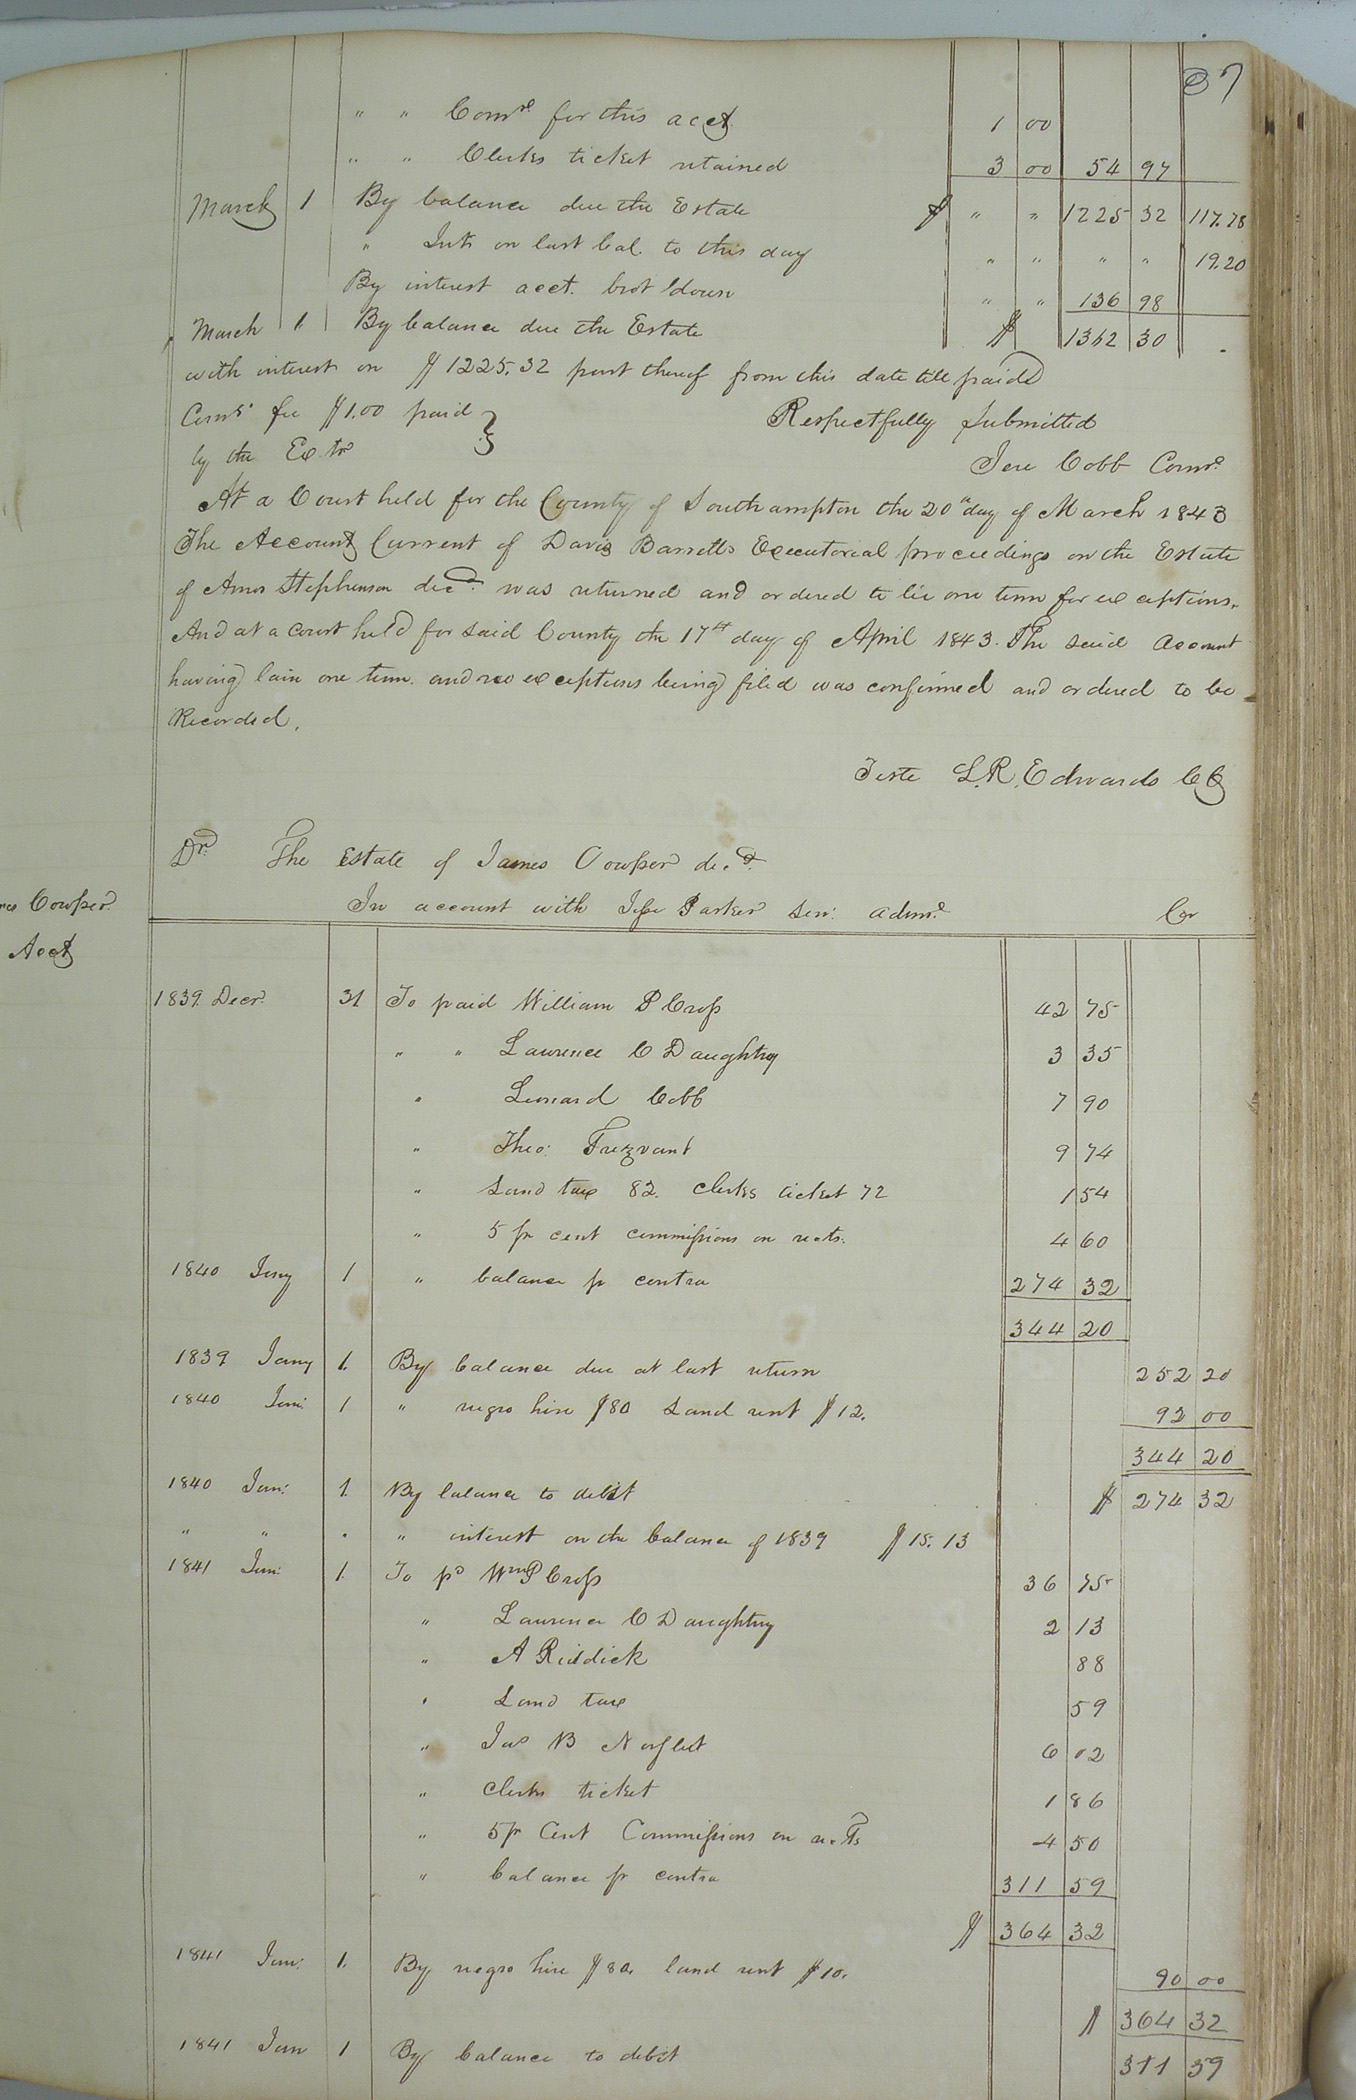 87
" " Comr for this acct. 1 00
" " Clerks ticket retained 3 00 54 97
March 1 By balance due the Estate $ " " 1225 32 117.78
" Intt on last bal. to this day " " " " 19.20
By interest acct. brot down " " 136 98
March 1 By balance due the Estate $ 1362 30
with interest on $1225.32 part thereof from this date till paid
Comrs fee $1.00 paid } Respectfully Submitted
by the Extr Jere Cobb Comr.
At a Court held for the County of Southampton the 20th day of March 1843
The Account Current of Davis Barretts Executorial proceedings on the Estate
of Amos Stephenson decd. was returned and ordered to lie one term for exceptions.
And at a Court held for said County the 17th day of April 1843. The said Account
having lain one term and no exceptions being filed was confirmed and ordered to be
Recorded.
Teste L.R. Edwards CC
Dr. The Estate of James Cowper decd.
Cowper In account with Jesse Parker Senr. admr. Cr
Acct
1839 Decr. 31 To paid William P Cross 42 75
" " Lawrence C Daughtry 3 35
" Leonard Cobb 7 90
" Theo: Trezvant 9 74
" Land tax 82. Clerks ticket 72 1 54
" 5 pr cent commissions on rects. 4 60
1840 Jany 1 " balance pr contra 274 32
344 20
1839 Jany 1. By balance due at last return 252 20
1840 Jan: 1 " negro hire $80 Land rent $12. 92 00
344 20
1840 Jan: 1. By balance to debit $ 274 32
" " " " interest on the balance of 1839 $15.13
1841 Jan: 1. To pd Wm P Cross 36 75
" Lawrence C Daughtry 2 13
" A Riddick 88
" Land tax 59
" Jas B Norfleet 6 02
" Clerks ticket 1 86
" 5 pr Cent Commissions on rects 4 50
" balance pr contra 311 59
$ 364 32
1841 Jan: 1. By negro hire $80. land rent $10. 90 00
$ 364 32
1841 Jan 1 By balance to debit 311 59